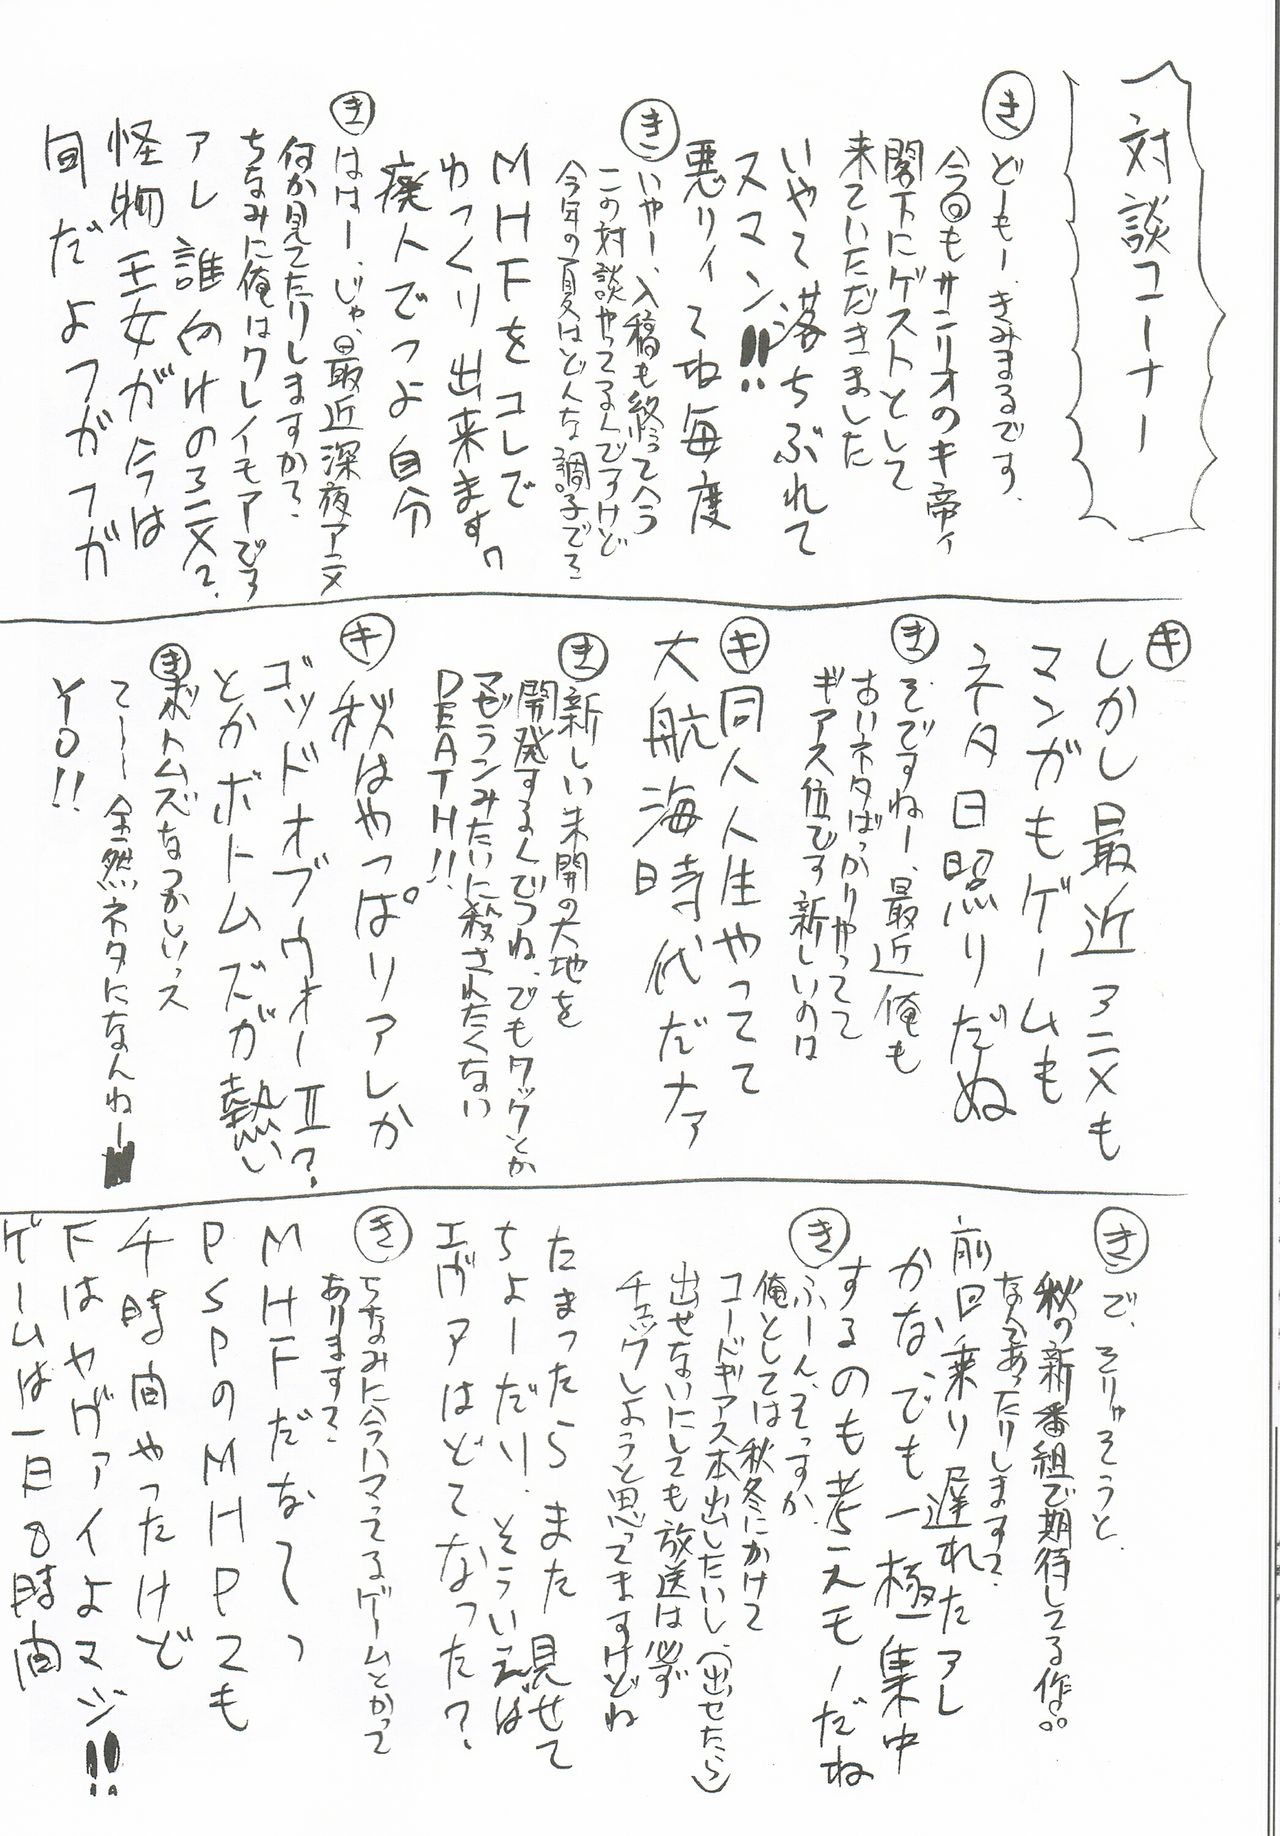 対談コーナー
き どーもー、きみまるです、
今回もサンリオのキ帝ィ
閣下にゲストとして
来ていただきました
いやて落ちぶれて
スマン!!
悪リィてね毎度
き いやー、入稿も終って今
この対談やってるんですけど
今年の夏はどんな調子でス
MHFをコレで
ゆっくり出来ます。
廃人でつよ自分
き はは一、じゃ、最近深夜アニメ
何か見てたりしますか?
ちなみに俺はクレイモアです
アレ誰向けのアニメ?
怪物王女が今は
旬だよフガフガ
キ しかし最近アニメも
マンガもゲームも
ネタ日照りだぬ
き そですねー、最近俺も
古いネタばっかりやってて
ギアス位です新しいのは
キ 同人人生やってて
大航海時代だナァ
き 新しい未開の大地を
開発するんでつね、でもクックとか
マゼランみたいに殺されたくない
DEATH!!
キ 秋はやっぱりアレか
ゴッドオブウォーⅡ?
とかボトムズが熱い
き ボトムズなつかしいっス
てーー全然ネタになんねー
YO!!
き で、そりゃそうと、
秋の新番組で期待してる作品
なんてあったりします?
前回乗り遅れたアレ
かな、でも一極集中
するのも考えモノだね
き ふーん、そっすか、
俺としては秋冬にかけて
コードギアス本出したいし、(出せたら)
出せないにしても放送は必ず
チェックしようと思ってますけどね
たまったらまた見せて
ちょーだい、そういえば
エヴァはどてなった?
き ちなみに今ハマってるゲームとかって
あります?
MHFだなてっ
PSPのMHP2も
千時間やったけど
Fはヤヴァイよマジ!!
ゲームは一日8時間